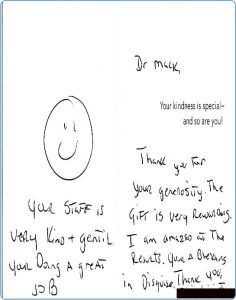 Dr Mack
Your kindness is special—
and so are you!
Thank you for
your generosity. The
Gift is very Rewarding.
I am amazed at the
Results. Your A Blessing
in Disguise. Thank you,
Your Staff is
very Kind + gentil
your Doing A great
JOB